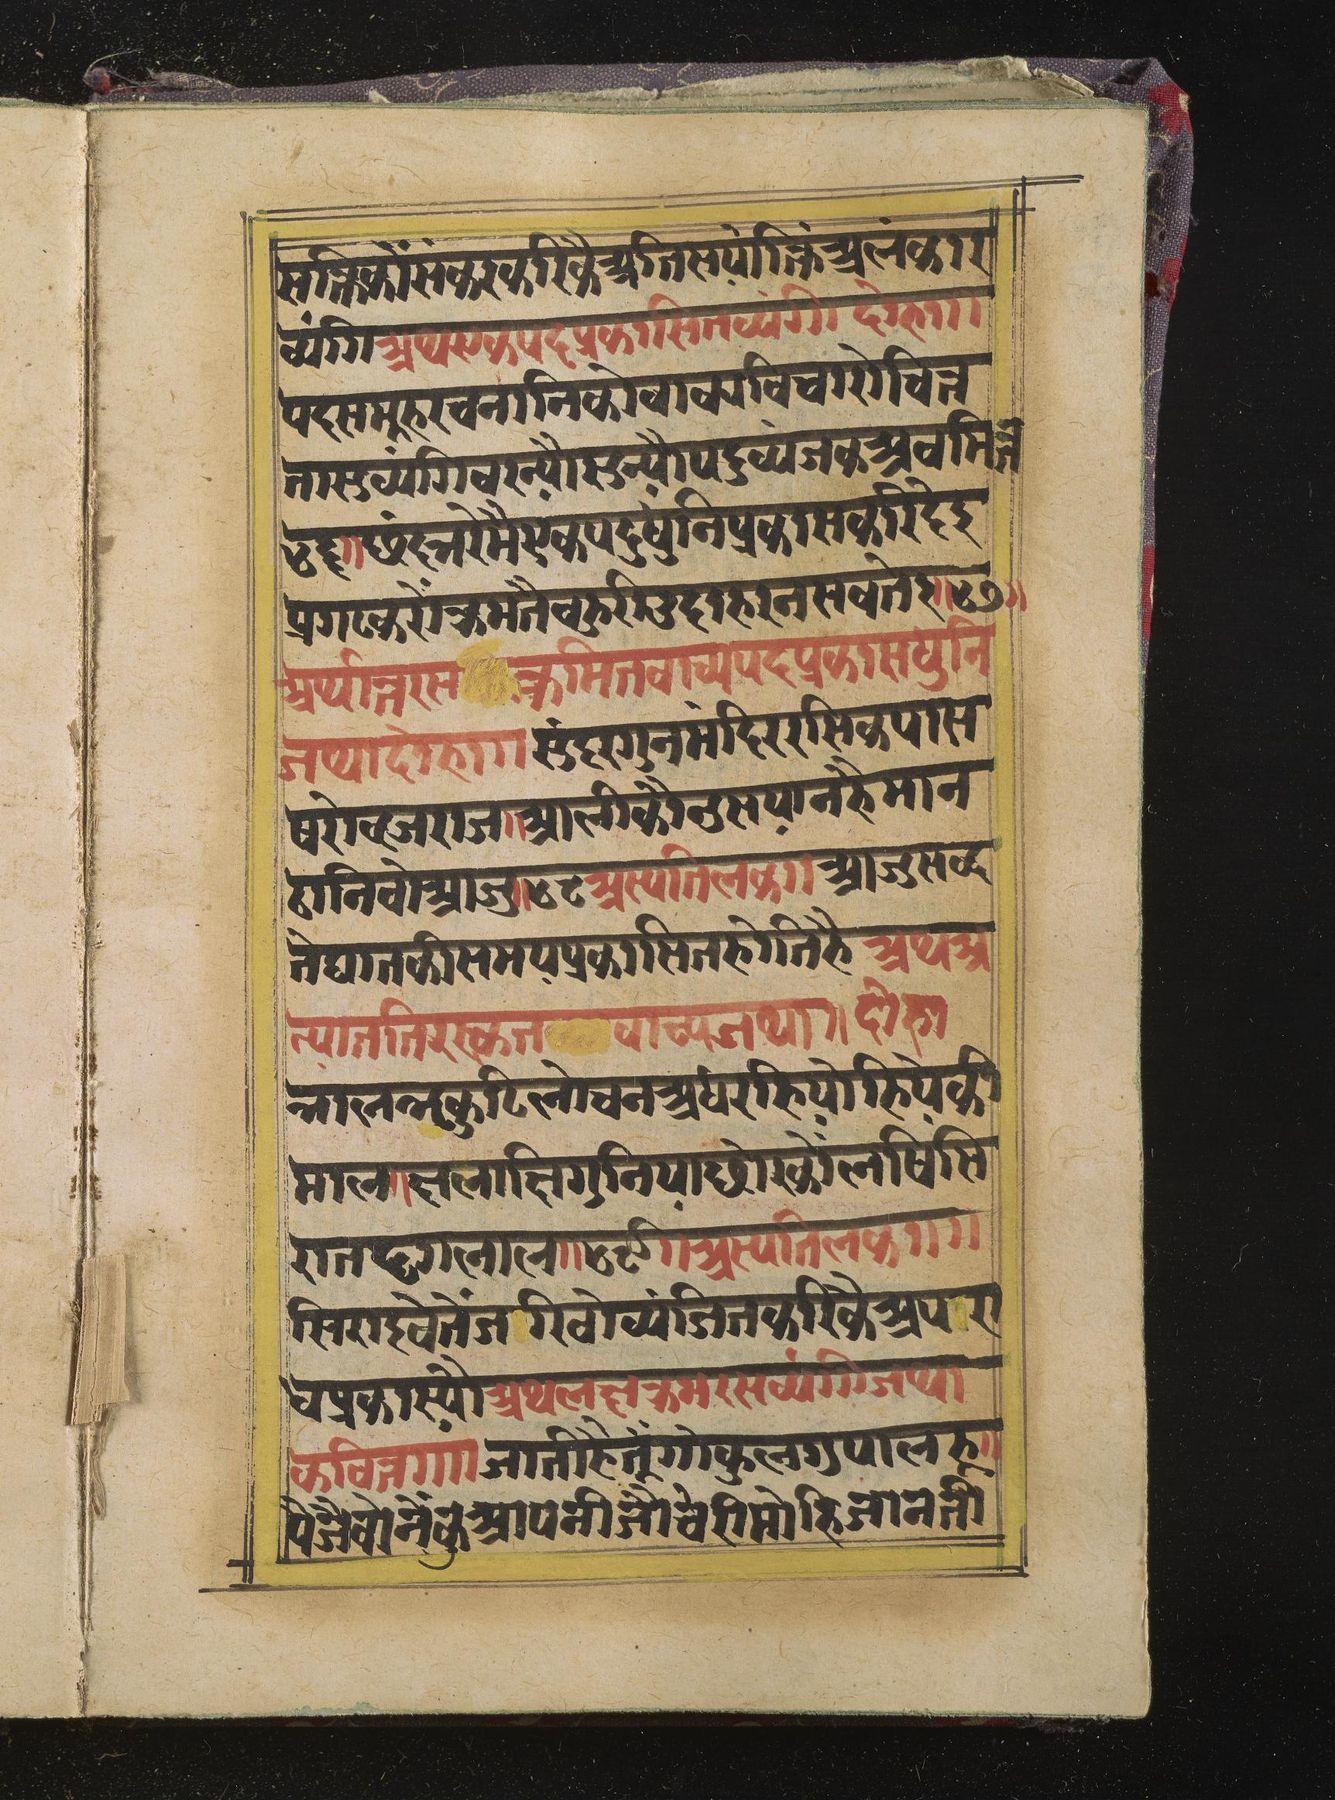 सक्तिकौं संकर करिकै अतिसयोक्ति अलंकार
व्यंगि अथ एक पद प्रकासित व्यंगी दोहा ॥
पद समूह रचनानि को वाक्य विचारो चित्त
तासु व्यंगि वरन्यौ सुन्यौ पदु व्यंजक अव मित्त
४६॥ छंद भरे मै एक पदु धुनि प्रकास करि देइ
प्रगट करौं क्रम तै वहुरि उदाहरन सव तेइ॥४७॥
अर्थांत्तर स क्रमित वाच्य पद प्रकास धुनि
जथा दोहा ॥ सुंदर गुन मंदिर रसिक पास
षरो व्रजराज॥ आली कौनु सयान है मान
ठानिवो आजु॥४८ अस्य तिलक ॥ आजु सव्द
ते घात की समय प्रकासित होति है अथ अ
त्यांत तिरस्कृत वाच्य जथा॥ दोहा
भाल भृकुटि लोचन अधर हियो हिये की
माल॥ छला छिगुनिया छोर कौं लषि सि
रात द्रग लाल॥४९॥ अस्य तिलक ॥
सिराइवे तें ज रिवो व्यंजित करिकै अप रा
ध प्रकास्यौ अथ लछक्रम रस व्यंगि जथा
कवित्त ॥ जाती है तूं गोकुल गुपाल हू॥
पै जैवो नेंकु आपनी जो चेरी मोहि जानती